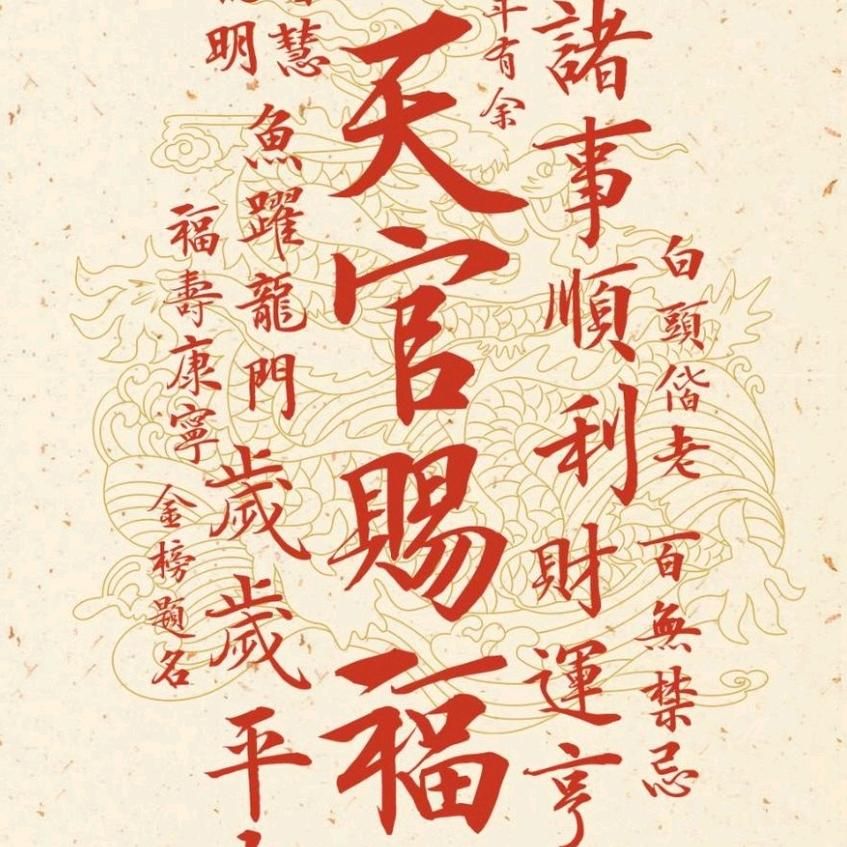 白頭偕老
百無禁忌
諸事順利
財運亨
年有余
天官賜福
慧
明
魚躍龍門
歲歲平
福壽康寧
金榜題名